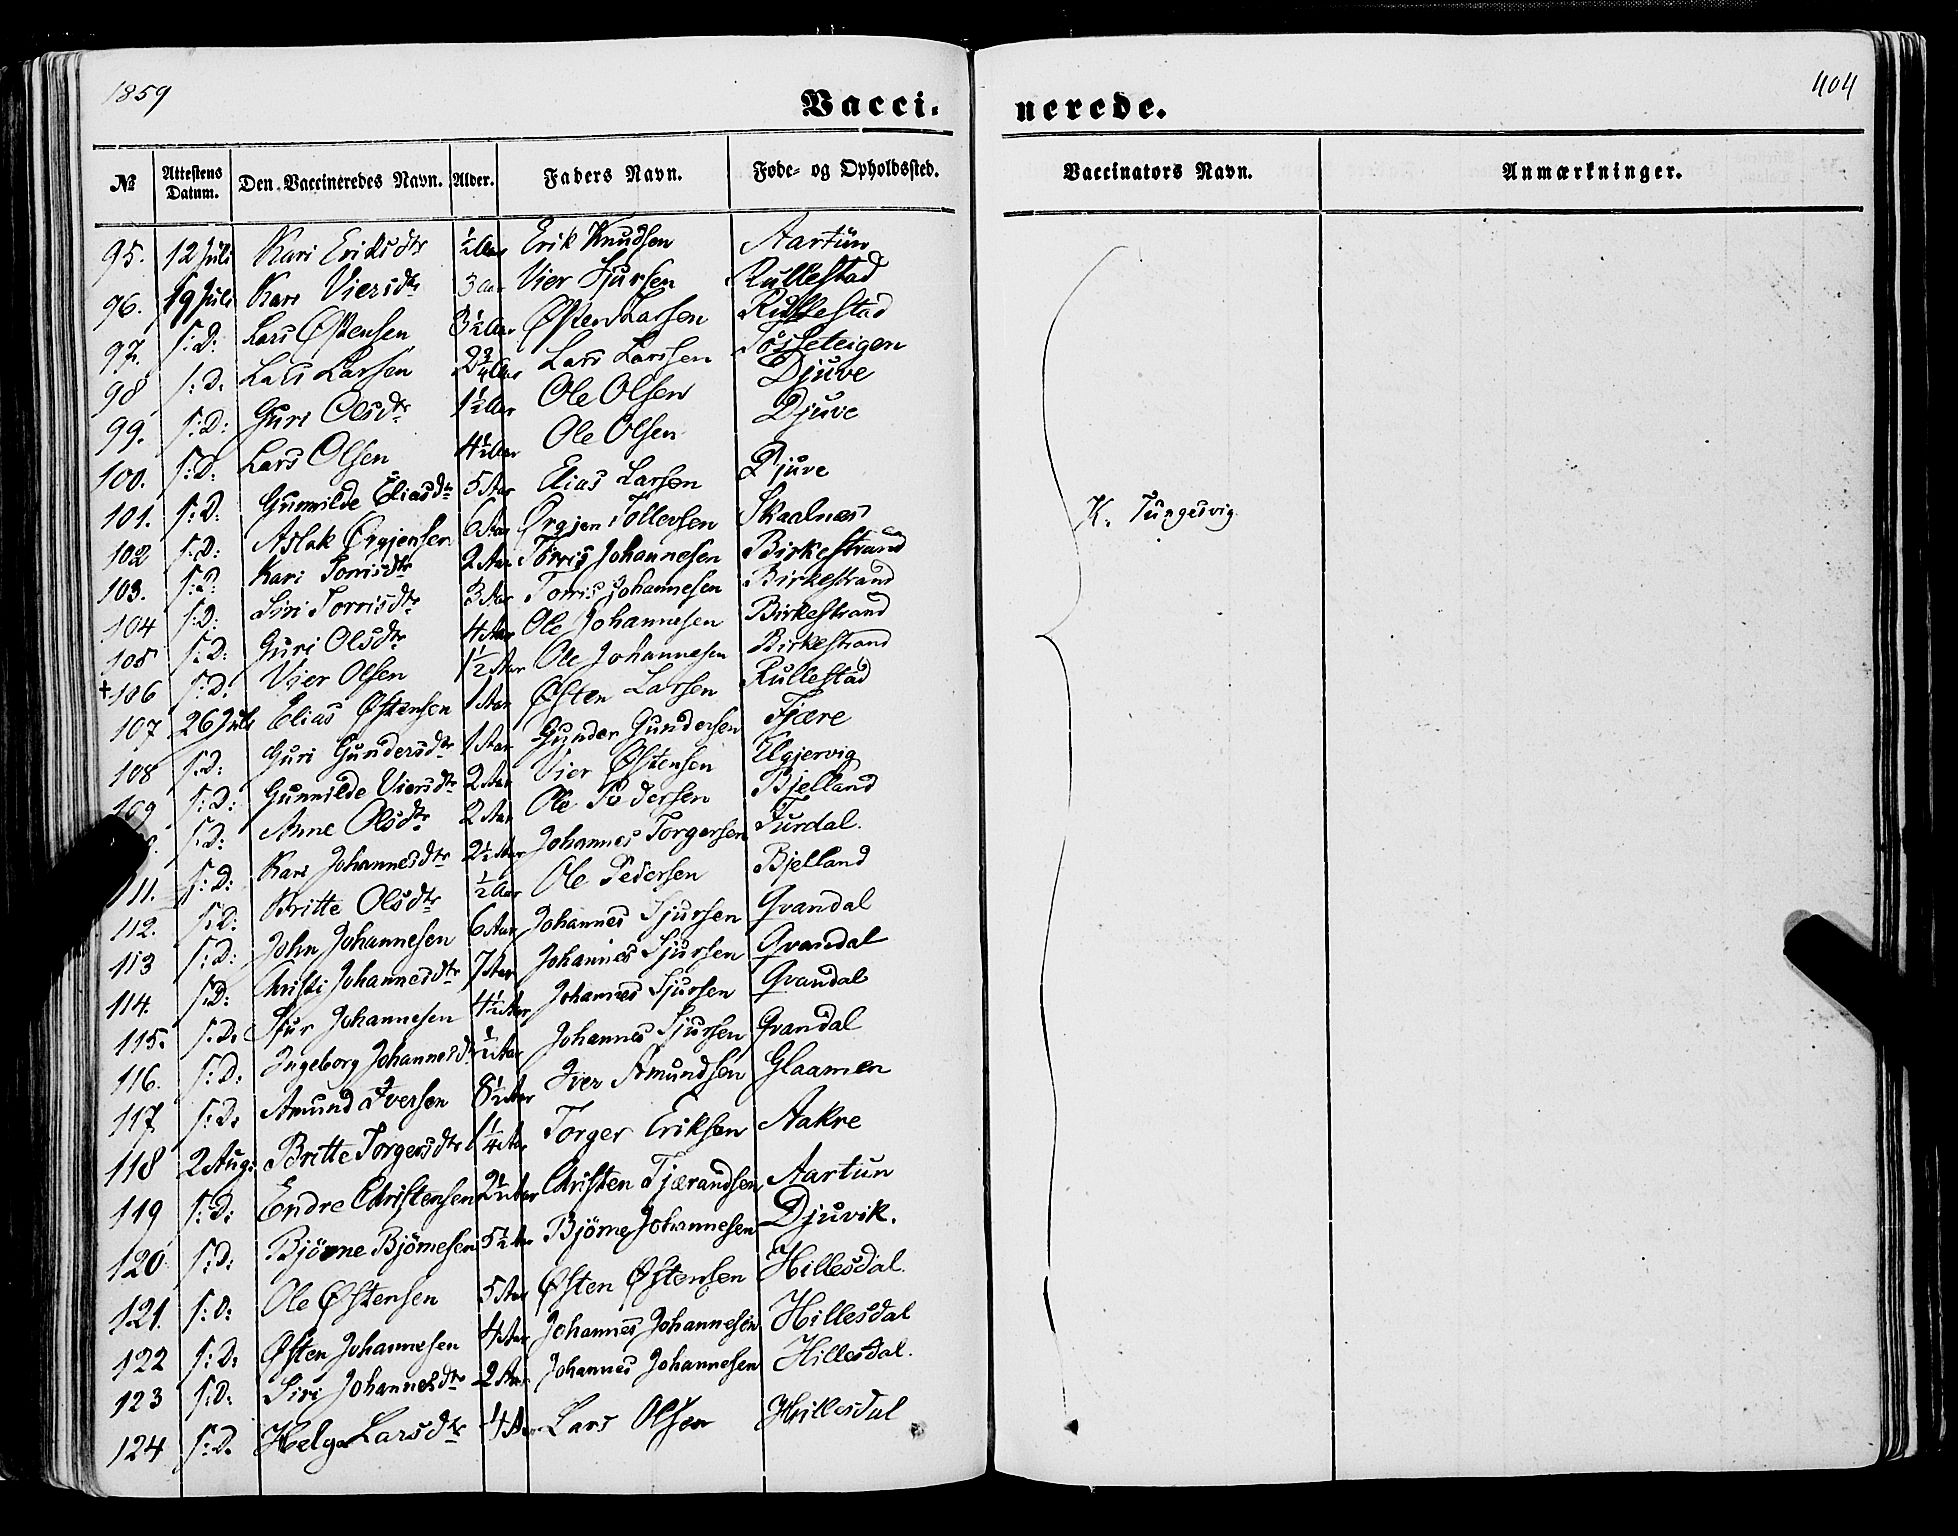 1859
Vacci-
nerede.
404
№ Attestens Datum. Den Vaccineredes Navn. Alder. Faders Navn. Føde- og Opholdssted. Vaccinators Navn. Anmærkninger.
95. 12 Juli Kari Eriksdtr ½ Aar Erik Knudsen Aartun
96. 19 Juli Kari Viersdtr 3 Aar Vier Sjursen Rullestad
97. s: D: Lars Østensen 3½ Aar Østen Larsen Rullestad
98 s: D. Lars Larsen 2¾ Aar Lars Larssen Tosseteigen
99. s: D: Guri Olsdtr 1½ Aar Ole Olsen Djuve
100. s: D. Lars Olsen 4½ Aar Ole Olsen Djuve
101. s: D: Gunnilde Eliasdtr 5 Aar Elias Larsen Djuve
102 s: D: Aslak Ørgjensen 6 Aar Ørgjen Tollevsen Skaalnes
103. s: D: Kari Torrisdtr 2 Aar Torris Johannesen Birkestrand
104 s: D: Siri Torrisdtr 3 Aar Torris Johannesen Birkestrand
105 s: D: Guri Olsdtr 4 Aar Ole Johannesen Birkestrand
+106 s: D: Vier Olsen 1½ Aar Ole Johannesen Birkestrand
107 26 Juli Elias Østensen 1 Aar Østen Larsen Rullestad
108 s: D: Guri Gundersdtr 1 Aar Gunder Gundersen Fjære
109 s: D: Gunnilde Viersdtr 2 Aar Vier Østensen Ugjervig
s: D: Anne Olsdtr 2 Aar Ole Pedersen Bjelland
111. s: D: Kari Johannesdtr 2½ Aar Johannes Torgersen Furdal.
112. s: D: Britte Olsdtr ½ Aar Ole Pedersen Bjelland
113 s: D: John Johannesen 6 Aar Johannes Sjursen Qvandal
114. s: D: Christi Johannesdtr 7 Aar Johannes Sjursen Qvandal
115. s: D: Sjur Johannesen 4½ Aar Johannes Sjursen Qvandal
116. s: D: Ingeborg Johannesdtr ½ Aar Johannes Sjursen Qvandal
117 s: D: Amund Iversen 8½ Aar Iver Amundsen Glaamen
118 2 Aug: Britte Torgersdtr ¼ Aar Torger Eriksen Aakre
119 s: D: Endre Christensen 2½ Aar Christen Tjærandsen Aartun
120 s: D: Bjørne Bjørnesen 5½ Aar Bjørne Johannesen Djuvik.
121. s: D: Ole Østensen 5 Aar Østen Østensen Hillesdal.
122 s: D: Østen Johannesen 4 Aar Johannes Johannesen Hillesdal
123 s: D: Siri Johannesdtr 2 Aar Johannes Johannesen Hillesdal.
124 s: D. Helga Larsdtr Aar Lars Olsen Hillesdal
K. Tungesvig